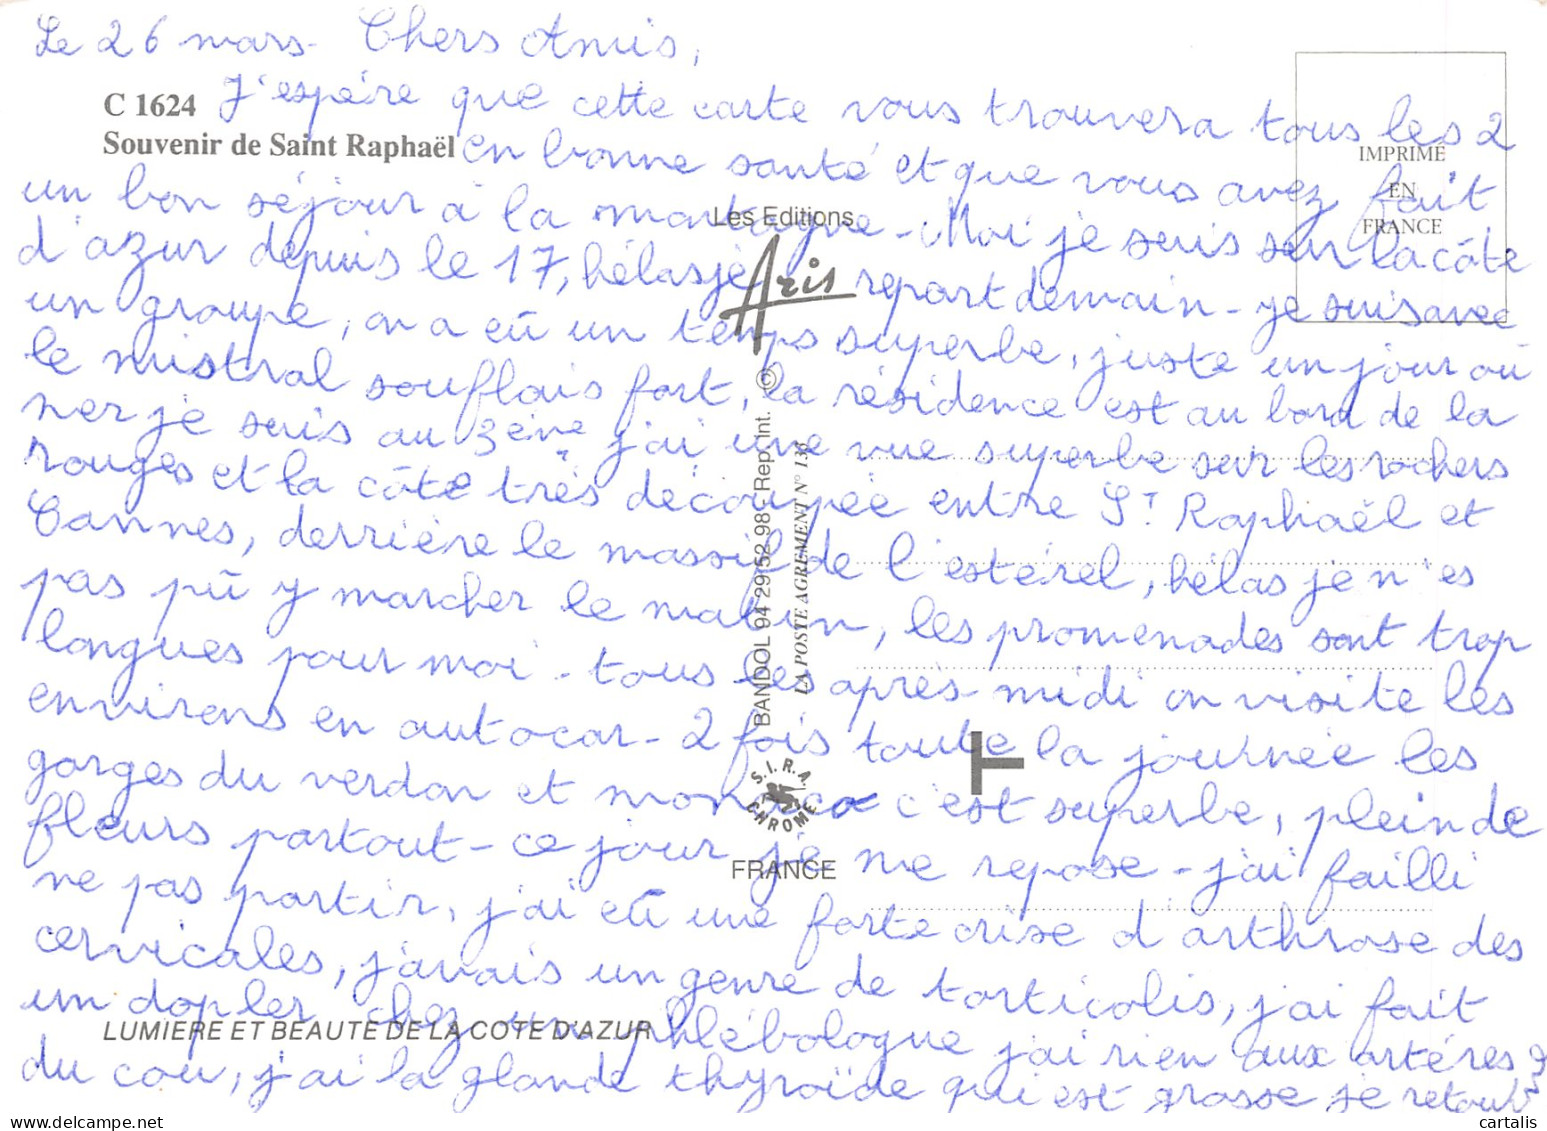 Le 26 mars - Chers Amis,
J'espère que cette carte vous trouvera tous les 2
C 1624
Souvenir de Saint Raphaël
en bonne santé et que vous avez fait
un bon séjour à la montagne - Moi je suis sur la côte
d'azur depuis le 17, hélas je repart demain - je suis avec
un groupe, on a eû un temps superbe, juste un jour où
le mistral souflais fort, la résidence est au bord de la
mer je suis au 3ème j'ai une vue superbe sur les rochers
rouges et la côte très découpée entre St Raphaël et
Cannes, derrière le massif de l'estérel, hélas je n'es
pas pû y marcher le matin, les promenades sont trop
longues pour moi - tous les après-midi on visite les
environs en autocar - 2 fois toute la journée les
gorges du verdon et monaco c'est superbe, plein de
fleurs partout - ce jour je me repose - j'ai failli
ne pas partir, j'ai eû une forte crise d'arthrose des
cervicales, j'avais un genre de torticolis, j'ai fait
un dopler chez un phlébologue j'ai rien aux artéres
du cou, j'ai la glande thyroïde qui est grosse je
IMPRIMÉ
EN
FRANCE
Les Editions
Aris
BANDOL 94 29 52 98 - Rep. Int. ©
LA POSTE AGREMENT N° 136
S.I.R.A.
CHROME
FRANCE
LUMIERE ET BEAUTE DE LA COTE D'AZUR
cartalis
www.delcampe.net